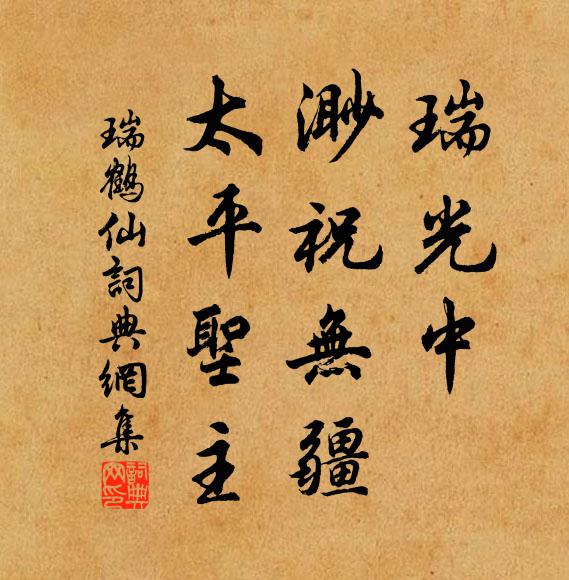 瑞光中
渺祝無疆
太平聖主
瑞鶴仙詞典網集
詞典网印